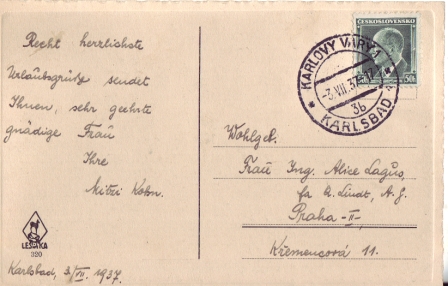 Recht herzlichste
Urlaubsgrüße sendet
Ihnen, sehr geehrte
gnädige Frau
Ihre
Mitzi Kohn.
LESETKA
320
Karlsbad, 3/VII. 1937.
ČESKOSLOVENSKO
50
KARLOVY VARY 1
-3.VII.37
3b
KARLSBAD
Wohlgeb.
Frau Ing. Alice Lagus,
fa A. Lindt, A. G.
Praha -II-,
Křemencová 11.